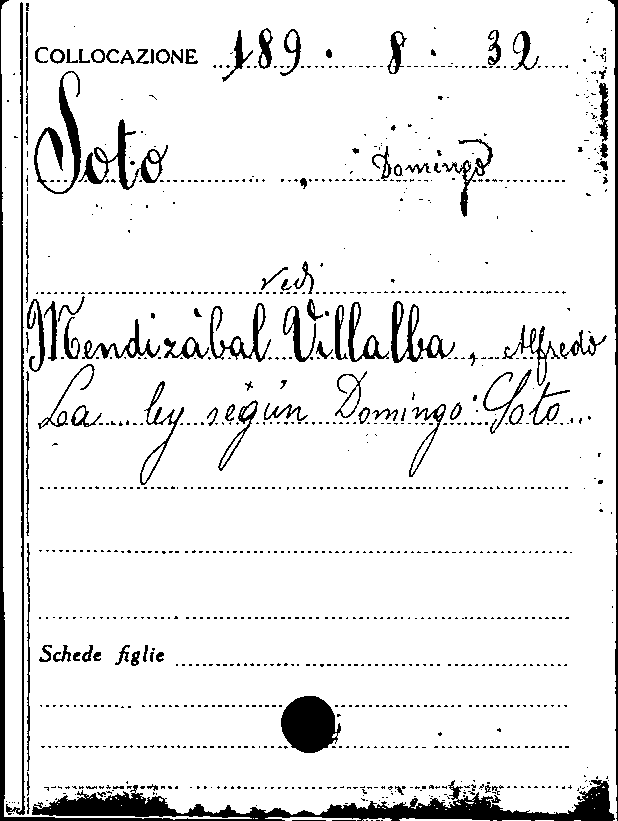 COLLOCAZIONE 189 · 8 · 32
Soto , Domingo
Vedi
Mendizàbal Villalba, Alfredo
La ley según Domingo Soto...
Schede figlie